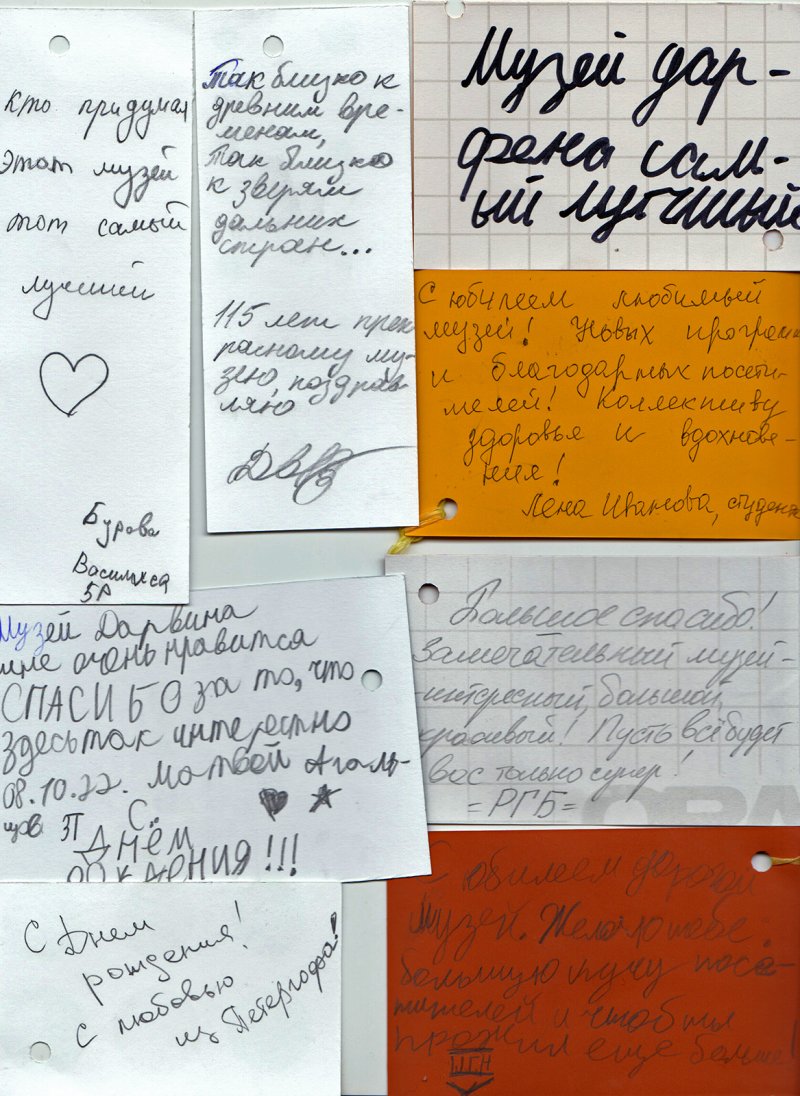 Кто придумал
этот музей
тот самый
лучший
Бурова
Василиса
5А
Так близко к
древним вре-
менам,
Так близко
к зверям
дальних
стран...
115 лет прек-
расному му-
зею, поздрав-
ляю
Музей дар-
фена сам-
ый лутчиый
С юбилеем любимый
музей! Новых программ
и благодарных посети-
телей! Коллективу
здоровья и вдохнове-
ния!
Лена Иванова,
Музей Дарвина
мне очень нравится
СПАСИБО за то, что
здесь так интересно
08.10.22. Матвей Агаль-
цов 3П
С
Днём
рождения!!!
Большое спасибо!
Замечательный музей-
интересный, большой,
красивый! Пусть всё будет
вас только супер!
=РГБ=
С Днем
рождения!
С любовью
из Петергофа!
С юбилеем дорогой
Музей. Желаю тебе
большую кучу посе-
тителей и чтоб ты
прожил еще больше!